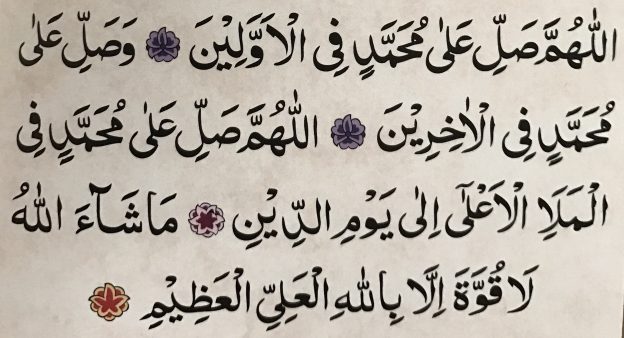 اَللّٰهُمَّ صَلِّ عَلٰى مُحَمَّدٍ فِى الْاَوَّلِيْنَ وَصَلِّ عَلٰى
مُحَمَّدٍ فِى الْاٰخِرِيْنَ اَللّٰهُمَّ صَلِّ عَلٰى مُحَمَّدٍ فِى
الْمَلَاِ الْاَعْلٰٓى اِلٰى يَوْمِ الدِّيْنِ مَاشَٓاءَ اللّٰهُ
لَا قُوَّةَ اِلَّا بِاللّٰهِ الْعَلِىِّ الْعَظِيْمِ